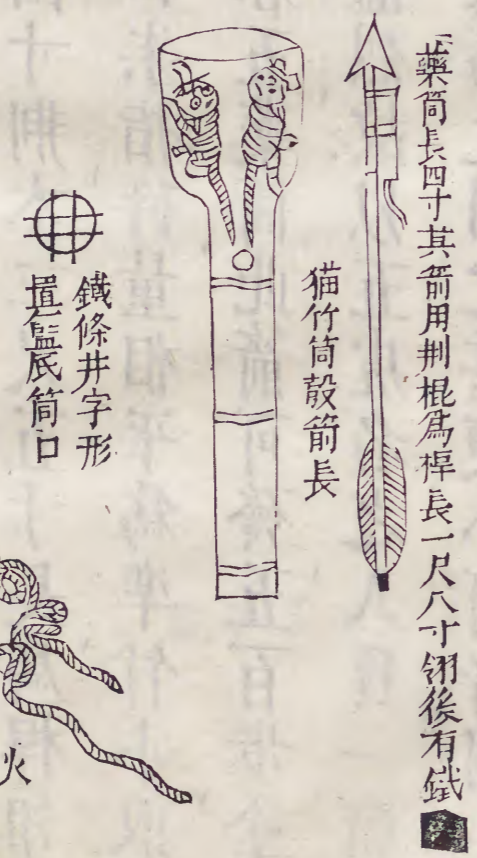 藥筒長四寸其箭用荆棍為桿長一尺八寸翎後有鐵
猫竹筒殼箭長
鐵條井字形
置籃底筒口
火